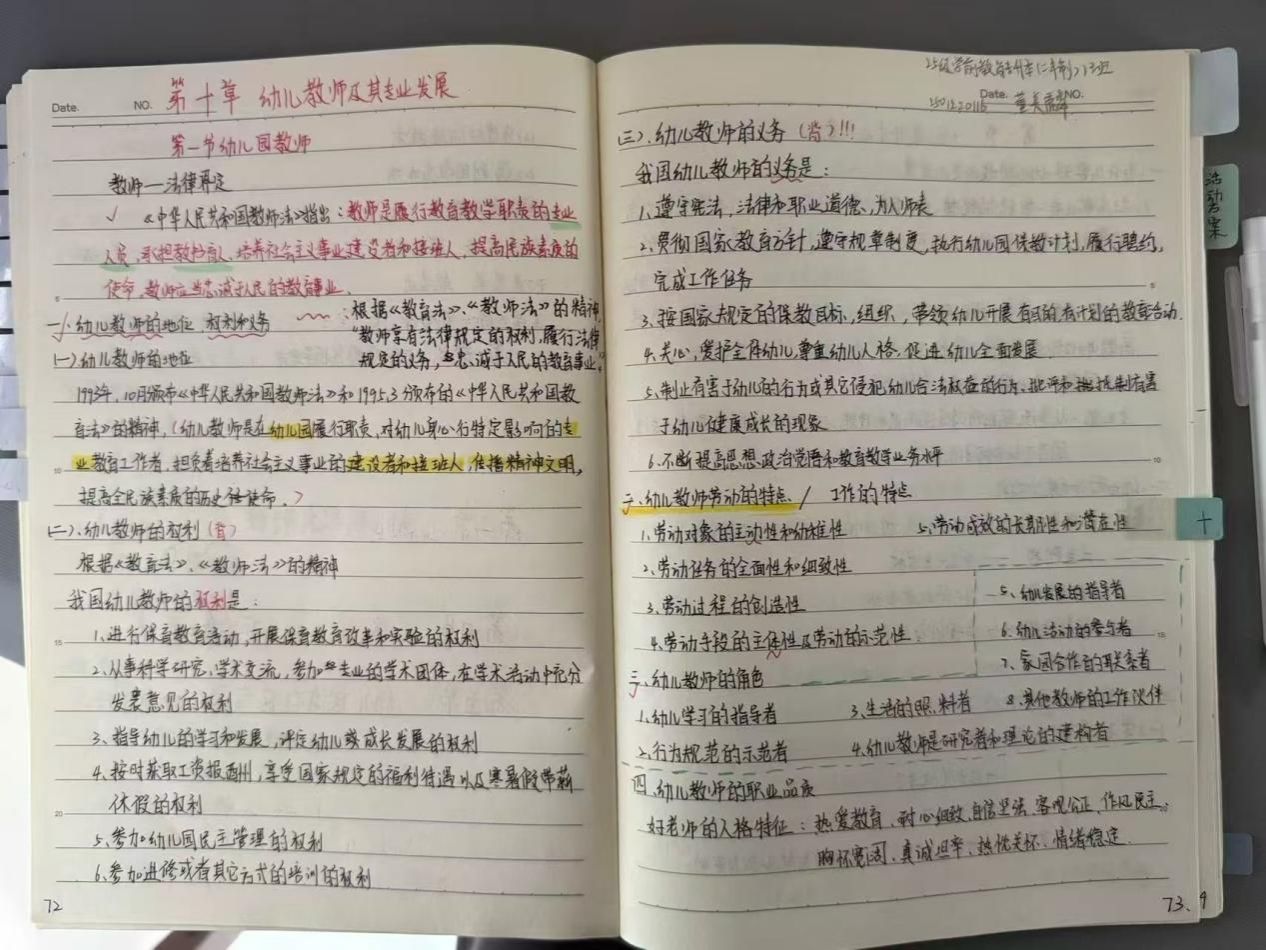 Date. NO. 第十章 幼儿教师及其专业发展
第一节幼儿园教师
教师—法律界定
√ 《中华人民共和国教师法》指出:教师是履行教育教学职责的专业
人员,承担教书育人,培养社会主义事业建设者和接班人、提高民族素质的
使命,教师应当忠诚于人民的教育事业。
一、幼儿教师的地位 权利和义务
:根据《教育法》、《教师法》的精神
“教师享有法律规定的权利,履行法律
规定的义务,忠诚于人民的教育事业。”
(一)幼儿教师的地位
1993年,10月颁布《中华人民共和国教师法》和1995.3颁布的《中华人民共和国教
育法》的精神,(幼儿教师是在幼儿园履行职责,对幼儿身心行特定影响的专
业教育工作者,担负着培养社会主义事业的建设者和接班人,传播精神文明,
提高全民族素质的历史使命.)
(二)、幼儿教师的权利(背)
根据《教育法》、《教师法》的精神
我国幼儿教师的权利是:
1、进行保育教育活动,开展保育教育改革和实验的权利
2、从事科学研究、学术交流,参加专业的学术团体,在学术活动中充分
发表意见的权利
3、指导幼儿的学习和发展,评定幼儿成长发展的权利
4、按时获取工资报酬,享受国家规定的福利待遇以及寒暑假带薪
休假的权利
5、参加幼儿园民主管理的权利
6、参加进修或者其它方式的培训的权利
72
25级学前教育专升本(二年制)3班
Date. NO.
(三)、幼儿教师的义务(背)!!!
我国幼儿教师的义务是:
1、遵守宪法,法律和职业道德、为人师表
2、贯彻国家教育方针,遵守规章制度,执行幼儿园保教计划,履行聘约,
完成工作任务
3、按国家规定的保教目标,组织,带领幼儿开展有目的,有计划的教育活动.
4、关心,爱护全体幼儿,尊重幼儿人格,促进幼儿全面发展
5、制止有害于幼儿的行为或其它侵犯幼儿合法权益的行为、批评和抵制有害
于幼儿健康成长的现象
6、不断提高思想,政治觉悟和教育教学业务水平
二、幼儿教师劳动的特点 / 工作的特点
1、劳动对象的主动性和幼稚性 5、劳动成效的长期性和潜在性
2、劳动任务的全面性和细致性
3、劳动过程的创造性
4、劳动手段的主体性及劳动的示范性
三、幼儿教师的角色
1、幼儿学习的指导者 3、生活的照料者
2、行为规范的示范者 4、幼儿教师是研究者和理论的建构者
5、幼儿发展的指导者
6、幼儿活动的参与者
7、家园合作的联系者
8、其他教师的工作伙伴
四、幼儿教师的职业品质
好老师的人格特征:热爱教育、耐心细致、自信坚强、客观公正、作风民主、
胸怀宽阔、真诚坦率、热忱关怀、情绪稳定.
73
活动方案
十